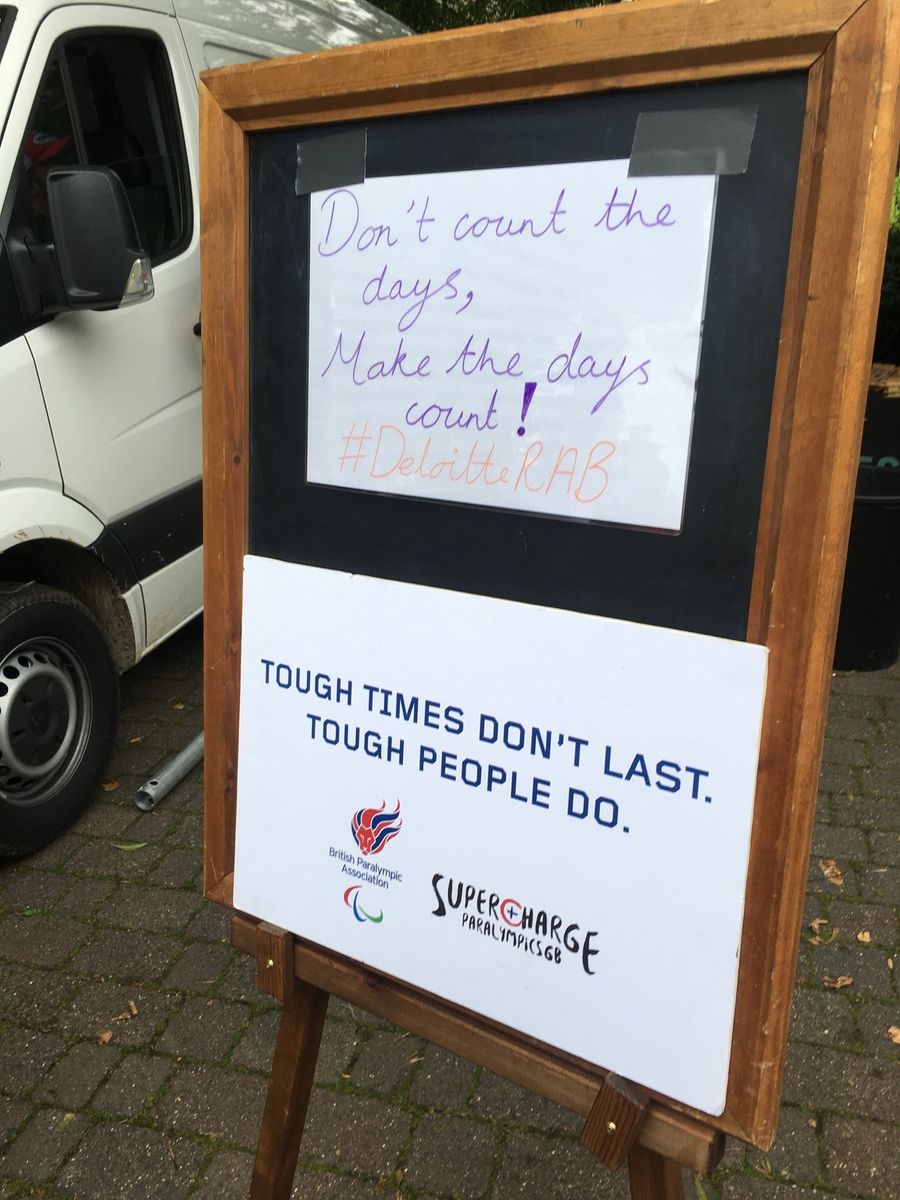 Don't count the
days,
Make the days
count!
#DeloitteRAB
TOUGH TIMES DON'T LAST.
TOUGH PEOPLE DO.
British Paralympic
Association
SUPERCHARGE
PARALYMPICSGB